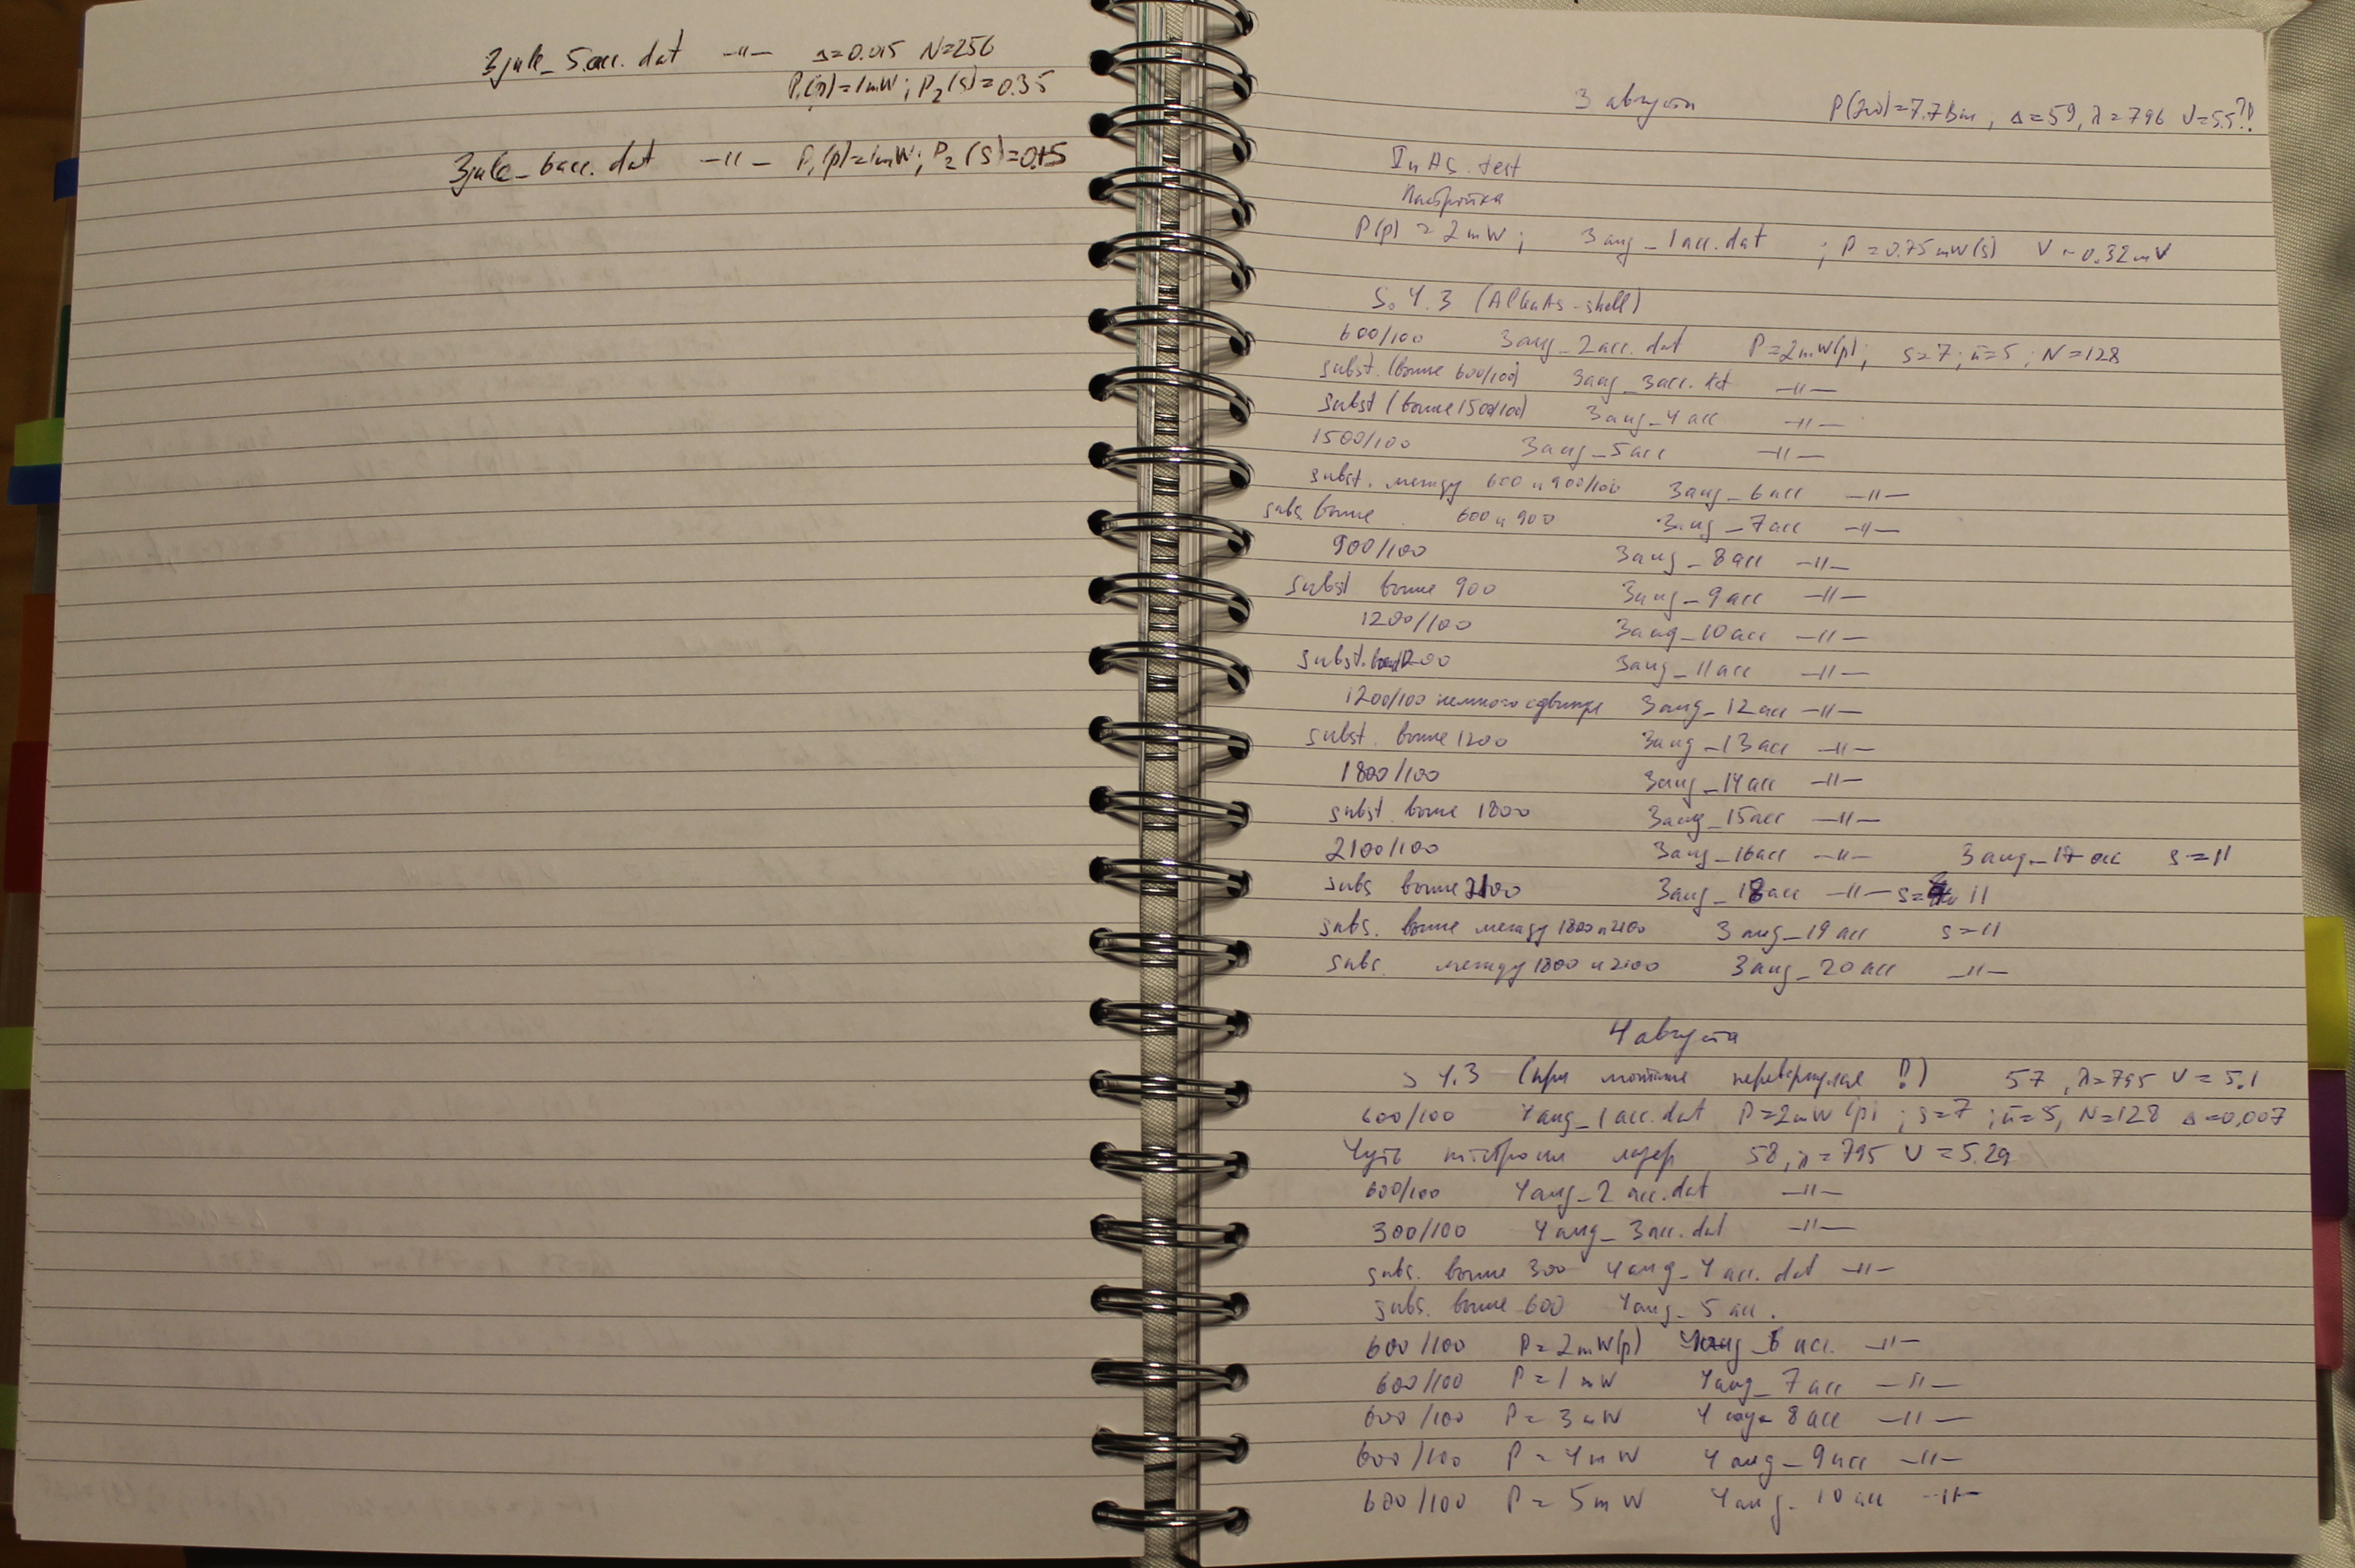 3jule_5acc.dat —〃— Δ=0.015 N=256
P₁(p)=1mW; P₂(s)=0.35
3jule_6acc.dat —〃— P₁(p)=1mW; P₂(s)=0.15
3 августа P(2ω)=7.7Вт, Δ=59, λ=796 V=5.5?!!
InAs test
Настройка
P(p) = 2mW; 3aug_1acc.dat ; P=0.75mW(s) V~0.32mV
S. 4.3 (AlGaAs-shell)
600/100 3aug_2acc.dat P=2mW(p); s=7; п=5; N=128
subst. (возле 600/100) 3aug_3acc. —〃—
subst (возле 1500/100) 3aug_4acc —〃—
1500/100 3aug_5acc —〃—
subst. между 600 и 900/100 3aug_6acc —〃—
subs возле 600 и 900 3aug_7acc —〃—
900/100 3aug_8acc —〃—
subst возле 900 3aug_9acc —〃—
1200/100 3aug_10acc —〃—
subst. 1200 3aug_11acc —〃—
1200/100 немного 3aug_12acc —〃—
subst. возле 1200 3aug_13acc —〃—
1800/100 3aug_14acc —〃—
subst. возле 1800 3aug_15acc —〃—
2100/100 3aug_16acc —〃— 3aug_17acc s=11
subs возле 2100 3aug_18acc —〃— s= 11
subs. возле между 1800 и 2100 3aug_19acc s=11
subs. между 1800 и 2100 3aug_20acc —〃—
4 августа
S 4.3 (при монтаже перевернулся !?) 57, λ=795 V=5.1
600/100 4aug_1acc.dat P=2mW (p); s=7; п=5, N=128 Δ=0,007
Чуть лазер 58, λ=795 V=5.29
600/100 4aug_2acc.dat —〃—
300/100 4aug_3acc.dat —〃—
subs. возле 300 4aug_4acc.dat —〃—
subs. возле 600 4aug_5acc.
600/100 P=2mW(p) 4aug_6acc. —〃—
600/100 P=1mW 4aug_7acc —〃—
600/100 P=3mW 4aug_8acc —〃—
600/100 P=4mW 4aug_9acc —〃—
600/100 P=5mW 4aug_10acc —〃—